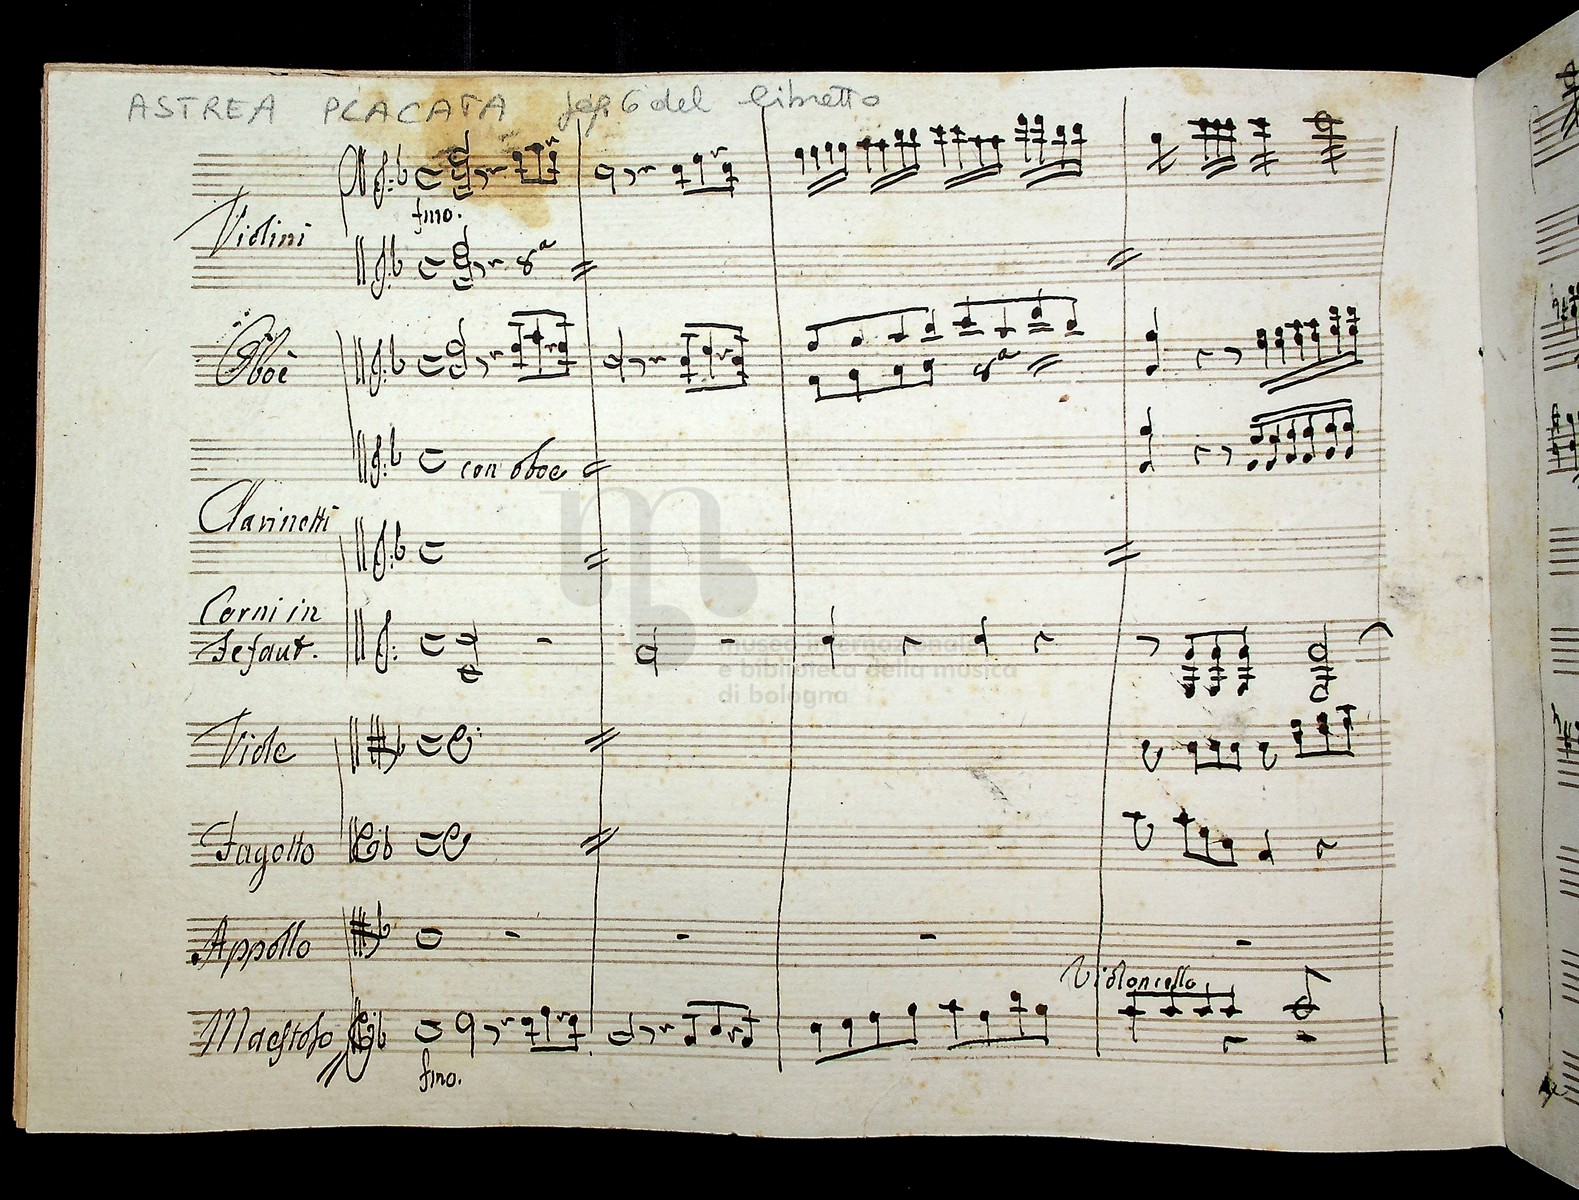 ASTREA PLACATA pag. 6 del libretto
Violini
fmo.
8a
Oboè
8a
con oboe
Clarinetti
Corni in
Fefaut.
museo internazionale
e biblioteca della musica
di bologna
Viole
Fagotto
Appollo
Violoncello
Maestoso
fmo.